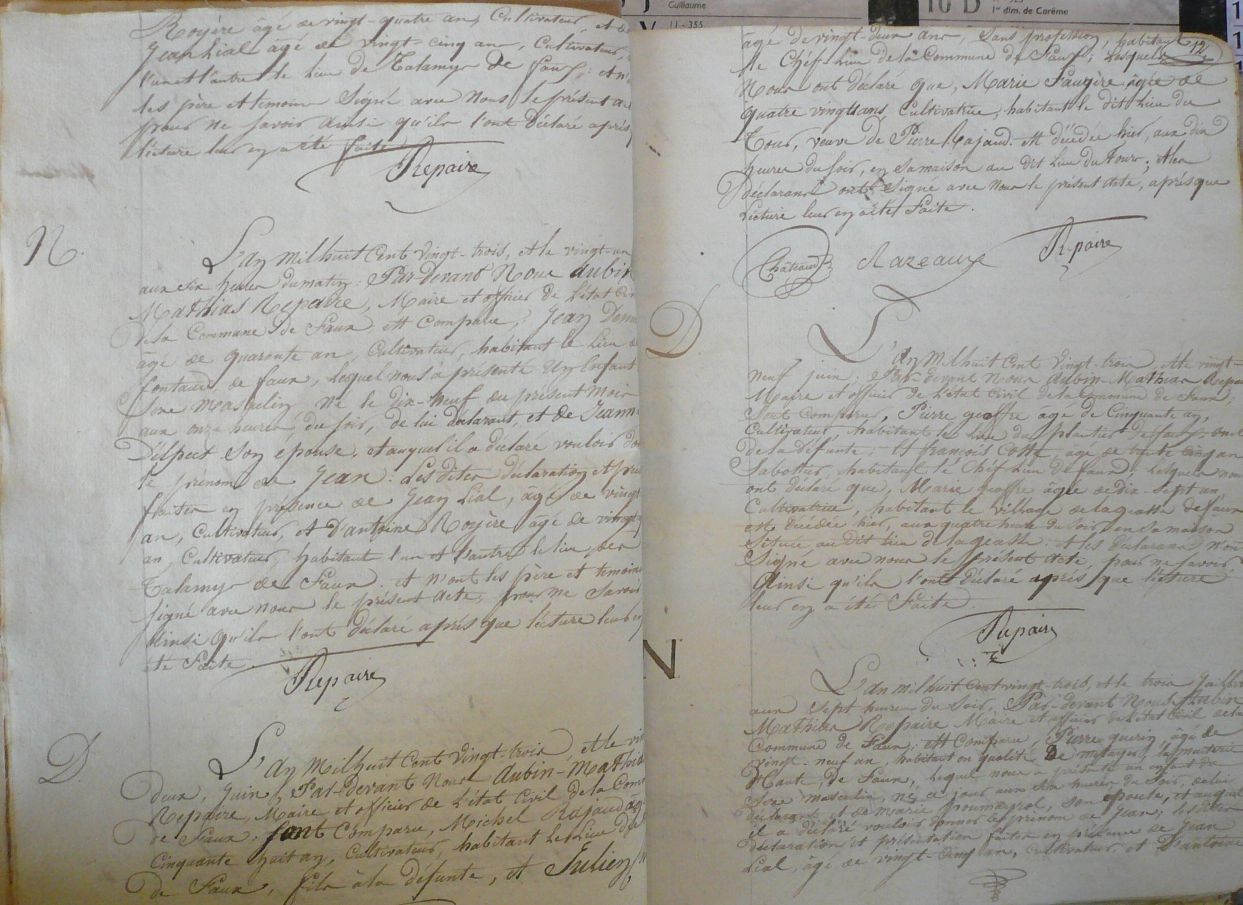 Royère âgé de vingt-quatre an, Cultivateur, et de
Jean Lial agé de vingt-cinq ans, Cultivateur,
l'un et l'autre le Lieu de Talamyr de Faux; et n'
les père et temoins Signé avec Nous le présent a
pour ne savoir ainsi qu'ils l'ont Déclaré après
lecture leur en a ete faite
Repaire
N.
L'an Mil huit Cent Vingt-trois, et le vingt-un
aux six heures du matin: Par devant Nous Aubin
Mathias Repaire, Maire et officier de l'état Civ
de la Commune de Faux est Comparu, Jean
âgé de quarante an, Cultivateur, habitant le Lieu de
de faux, lequel nous a présenté un Enfant
Sexe Masculin, né le dix-neuf du présent Mois
aux onze heures, du soir, de lui déclarant, et de Jeann
Delpect Son épouse, et auquel il a déclaré vouloir do
le prénom de Jean: Les dites declaration et prés
faites en présence de Jean Lial, agé de vingt
an, Cultivateur, et d'antoine Royère âgé de vingt-
an, Cultivateur, habitant l'un et l'autre le lieu, de
Talamyr de Faux. et n'ont les père et temoins
signé avec nous le présent acte, pour ne Savoir
Ainsi qu'ils l'ont déclaré après que lecture leur en
éte Faite.
Repaire
D
L'an Mil huit Cent Vingt-trois et le vi
deux, Juin, Par-devant Nous Aubin-Mathias
Repaire, Maire et officier de l'état Civil de la Com
de Faux; sont Comparu, Michel Rajaud ag
Cinquante huit an, Cultivateur, habitant le Lieu du
de Faux, fils à la defunte, et Julien
Guillaume
11 - 355
10 D
1er dim. de Carême
12
âgé de vingt-deux ans, Sans profession, habitant
le Chéf Lieu de la Commune de Faux; Lesquels
Nous ont déclaré que, Marie Faugère agée de
quatre vingt ans, Cultivatrice, habitant le dit Lieu du
Tour, veuve de Pierre Rajaud. est décédée hier, aux dix
heures du soir, en sa maison au dit Lieu du Tour; et les
déclarant ont Signé avec Nous le présent Acte, après que
Lecture leur en a été Faite.
Château Razeaux Repaire
D
L'an Mil huit Cent Vingt-trois et le vingt-
neuf juin, Par-devant Nous Aubin-Mathias Repaire
Maire et officier de l'état Civil de la Commune de Faux,
Sont Comparus, Pierre geoffre agé de Cinquante an,
Cultivateur, habitant le Lieu du plantier de faux,
de la Défunte; et françois Coste, agé de trente cinq an
Sabottier, habitant le Chéf Lieu de Faux; Lesquels nous
ont déclaré que, Marie geoffre âgée de dix-sept an,
Cultivatrice, habitant le village de de faux
est décédée hier, aux quatre heures du soir, en sa maison
Située au dit Lieu de et les déclarans n'ont
Signé avec nous le présent Acte, pour ne savoir
Ainsi qu'ils l'ont déclaré après que lecture
leur en a été Faite.
Repaire
N
L'an Mil huit Cent vingt-trois, et le trois Juillet
aux Sept heures du Soir, Par-devant Nous Aubin
Mathias Repaire Maire et officier de l'état Civil de la
Commune de Faux; est Comparu, Pierre guerin, agé de
vingt-neuf an, habitant en qualité de Métayer,
Haute, de Faux, Lequel nous a présenté un enfant du
Sexe masculin, né ce jour aux six heures du Soir, de lui
déclarant, et de marie poumeyrol, son épouse, et auquel
il a déclaré vouloir donner le prénom de Jean; Les dites
déclaration et présentation faites en présence de Jean
Lial, âgé de vingt-cinq an, Cultivateur, et D'antoine